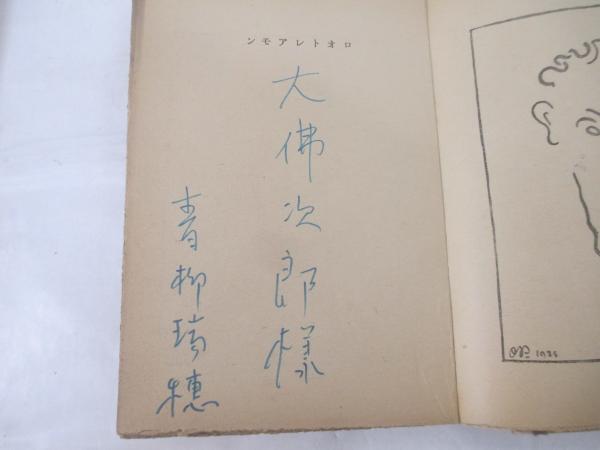 ロオトレアモン
大佛次郎様
青柳瑞穂
1925